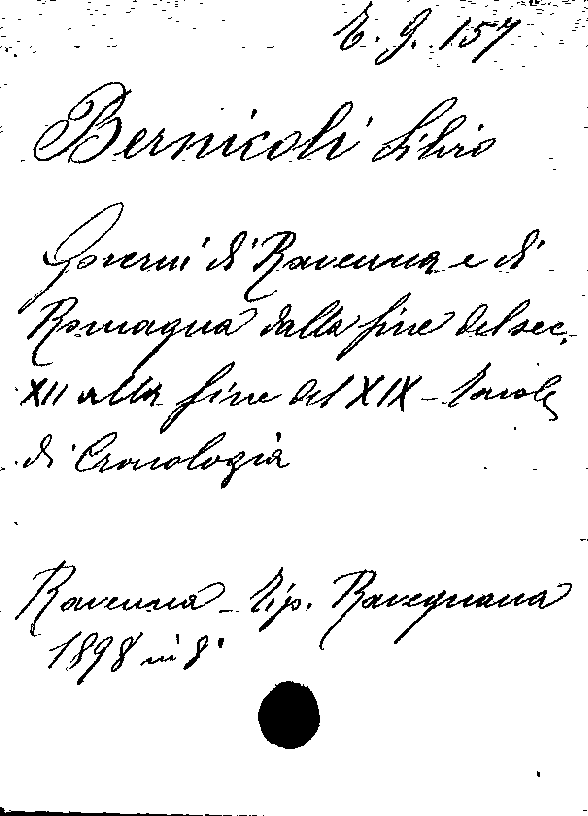 E. G. 157
Bernicoli Silvio
Governi di Ravenna e di
Romagna dalla fine del sec.
XII alla fine del XIX - Tavole
di Cronologia
Ravenna - Tip. Ravegnana
1898 in 8°